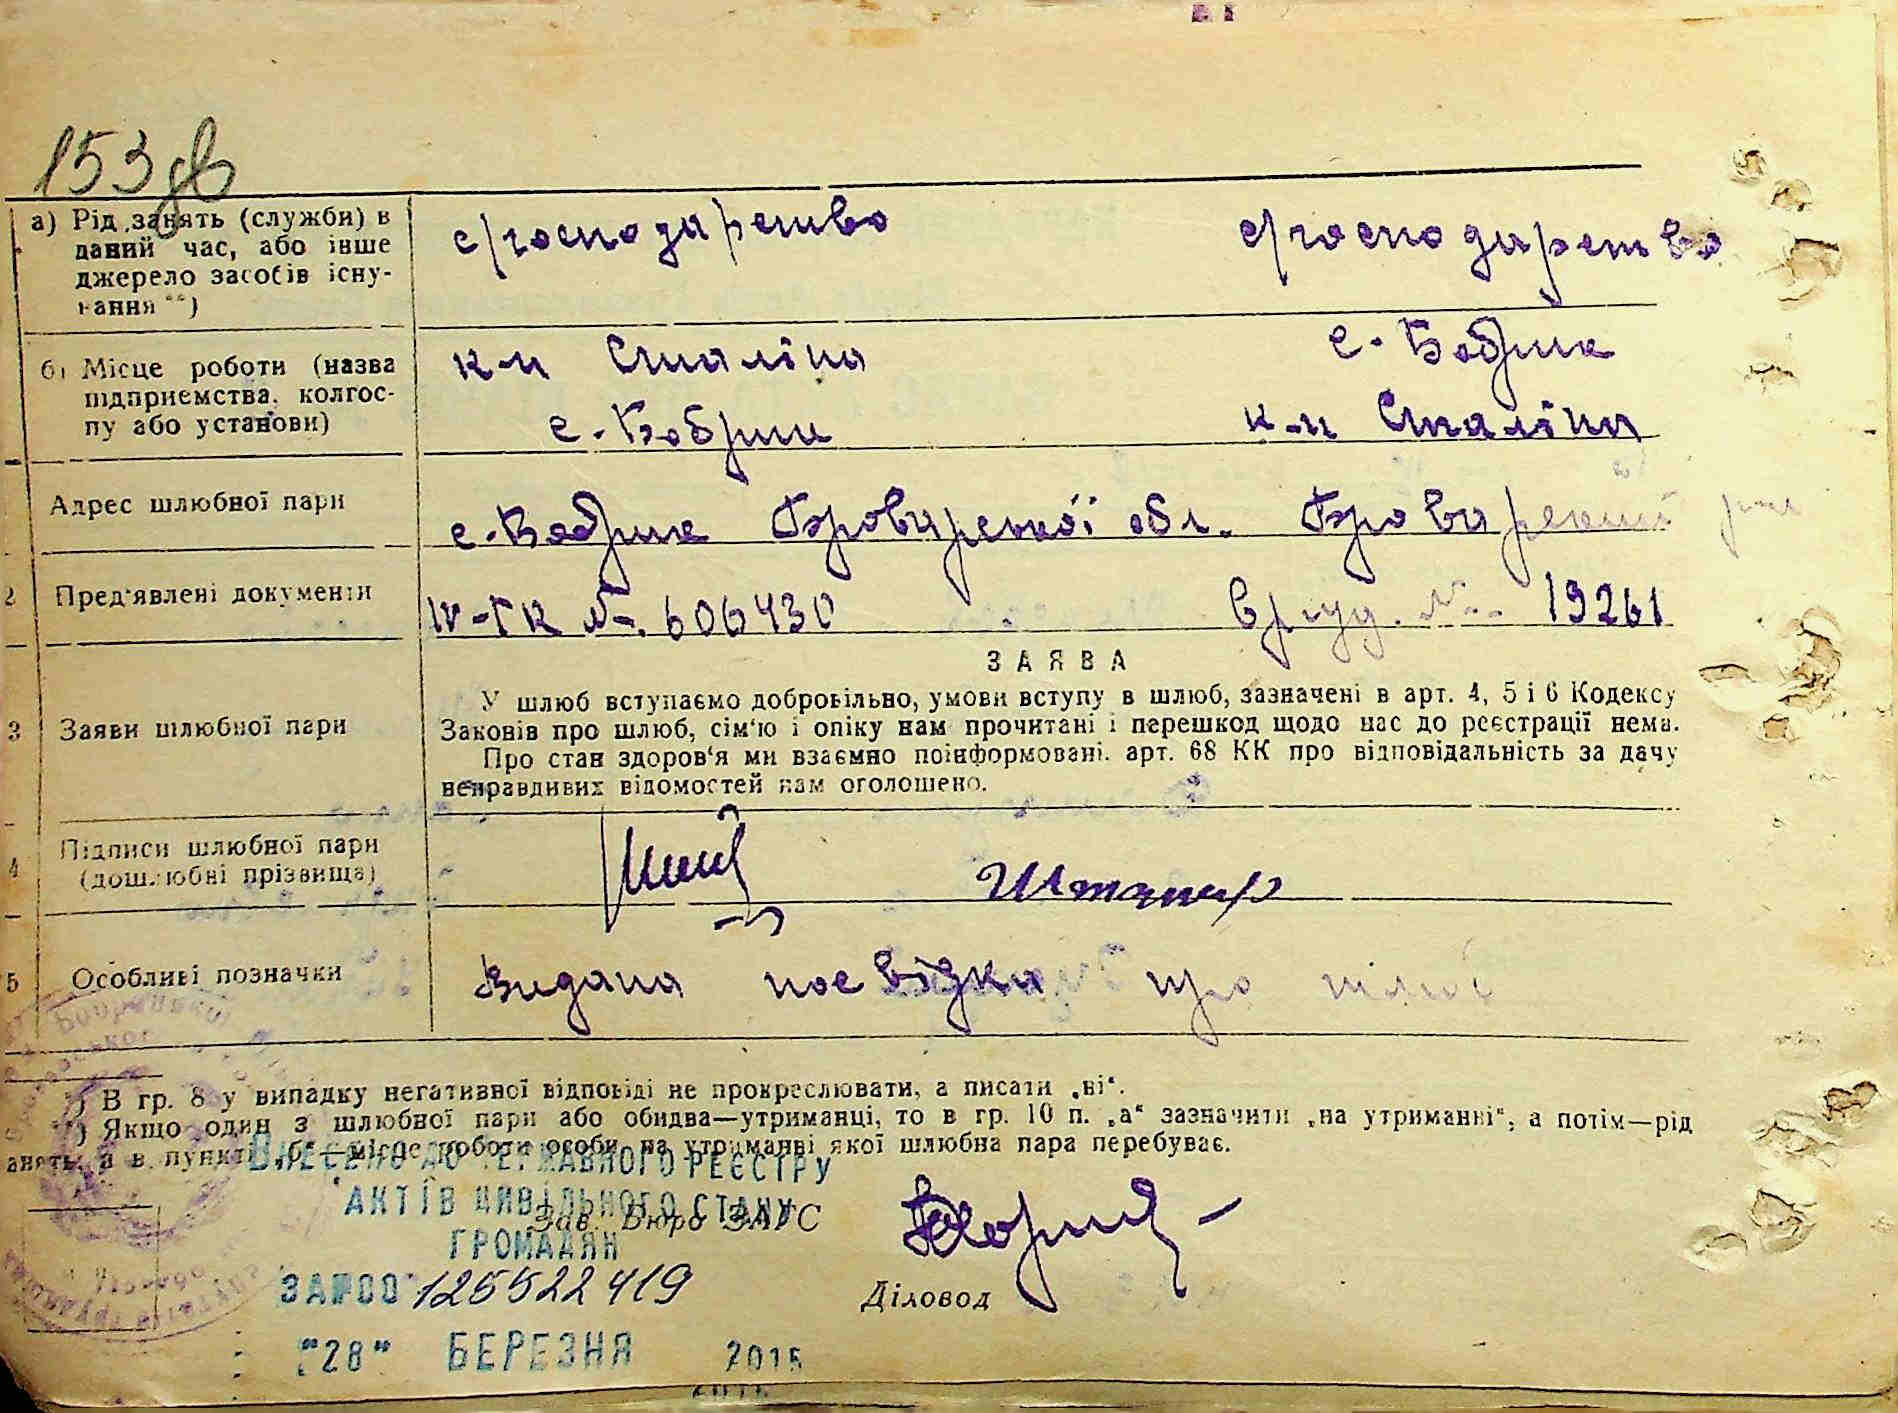 153 зв
а) Рід занять (служби) в
даний час, або інше
джерело засобів існу-
вання **)
с/господарство с/господарство
б) Місце роботи (назва
підприємства, колгос-
пу або установи)
к-п Сталіна с. Бобрик
с. Бобрик к-п Сталіна
Адрес шлюбної пари
с. Бобрик Броварської обл. Броварський р-н
2 Пред'явлені документи
IV-ГК №. 606430 №. 19261
ЗАЯВА
3 Заяви шлюбної пари
У шлюб вступаємо добровільно, умови вступу в шлюб, зазначені в арт. 4, 5 і 6 Кодексу
Законів про шлюб, сім'ю і опіку нам прочитані і перешкод щодо нас до реєстрації нема.
Про стан здоров'я ми взаємно поінформовані. арт. 68 КК про відповідальність за дачу
неправдивих відомостей нам оголошено.
4 Підписи шлюбної пари
(дошлюбні прізвища)
5 Особливі позначки
Видана посвідка про шлюб
*) В гр. 8 у випадку негативної відповіді не прокреслювати, а писати „ні“.
**) Якщо один з шлюбної пари або обидва—утриманці, то в гр. 10 п. „а“ зазначити „на утриманні“, а потім—рід
анять, а в пункті „б“—місце роботи особи, на утриманні якої шлюбна пара перебуває.
ВНЕСЕНО ДО ДЕРЖАВНОГО РЕЄСТРУ
АКТІВ ЦИВІЛЬНОГО СТАНУ
Зав. Бюро ЗАГС
ГРОМАДЯН
ЗА №00 125522419
Діловод
"28" БЕРЕЗНЯ 2015